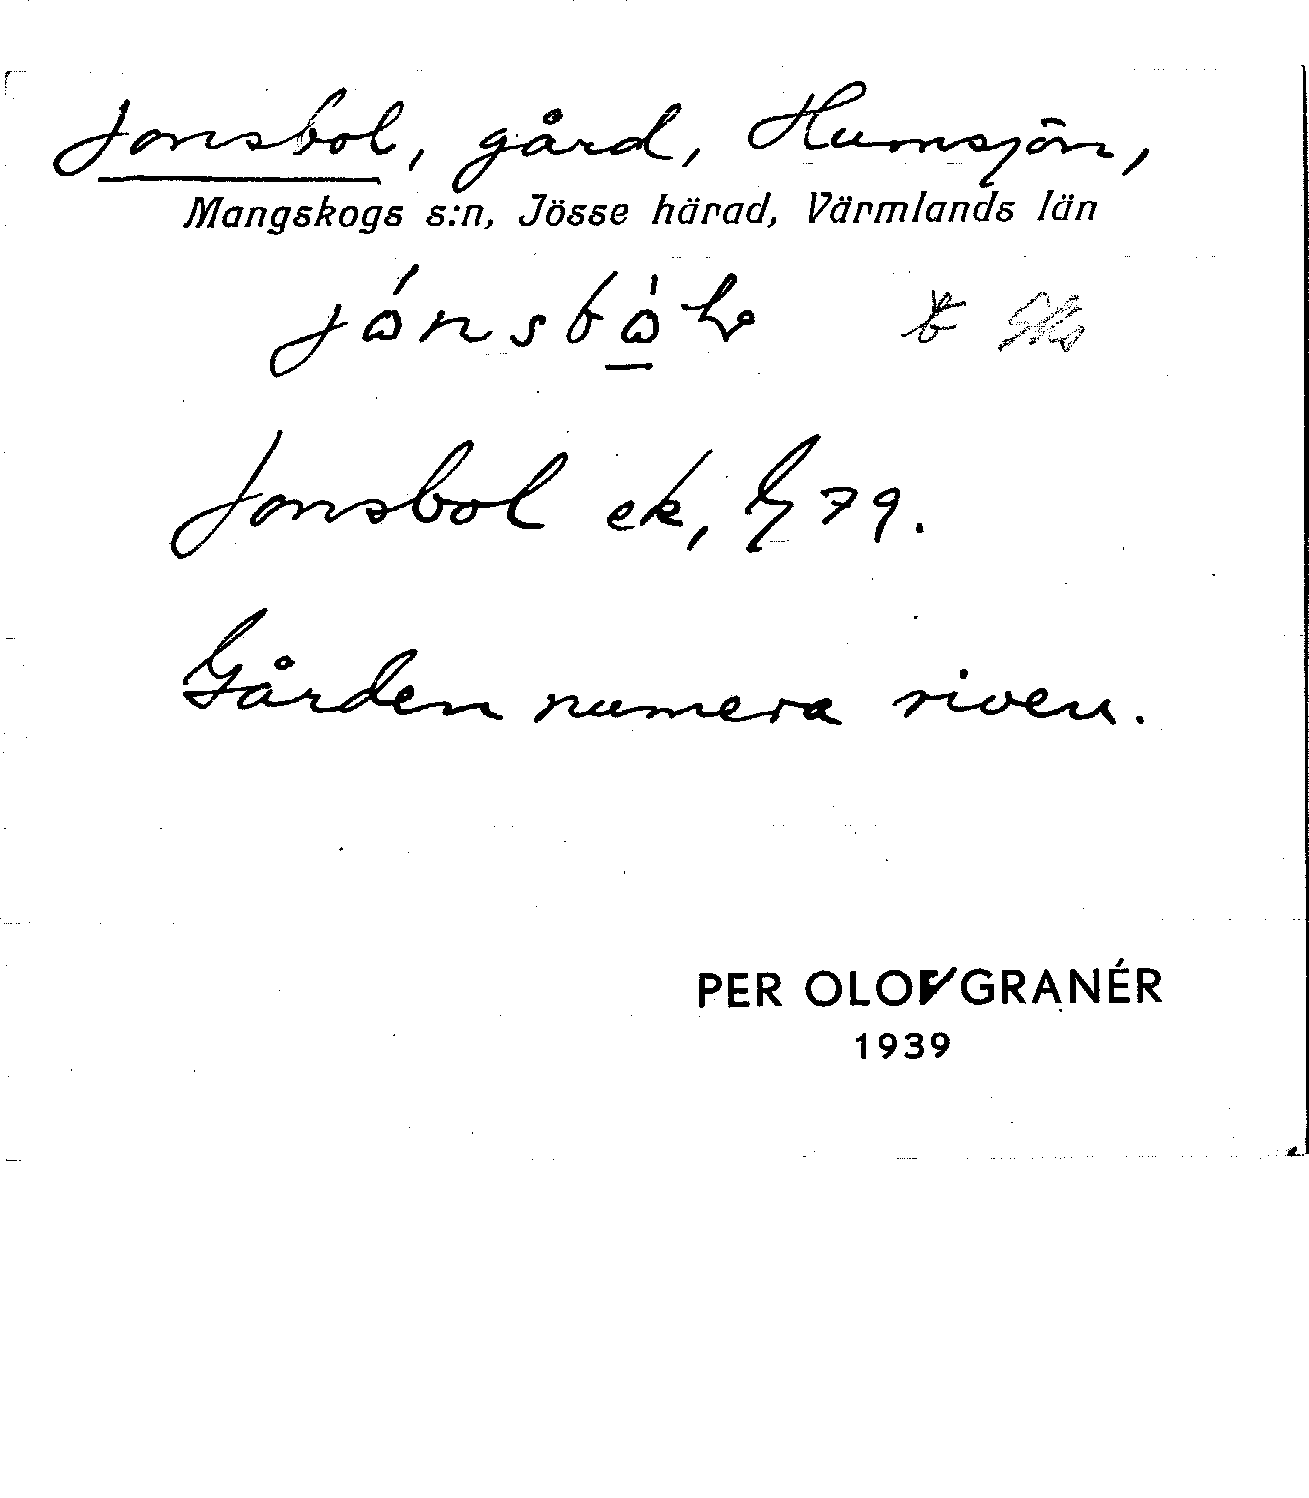 Jonsbol, gård, Humsjön,
Mangskogs s:n, Jösse härad, Värmlands län
Jonsbol ek, 79.
Gården numera riven.
PER OLOV GRANÉR
1939